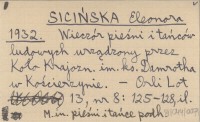 SICIŃSKA Eleonora
1932. Wieczór pieśni i tańców
ludowych urządzony przez
Koło Krajozn. im. ks. Damrotha
w Kościerzynie. - Orli Lot
13, nr 8: 125-128, il.
M. in. pieśni i tańce podh.